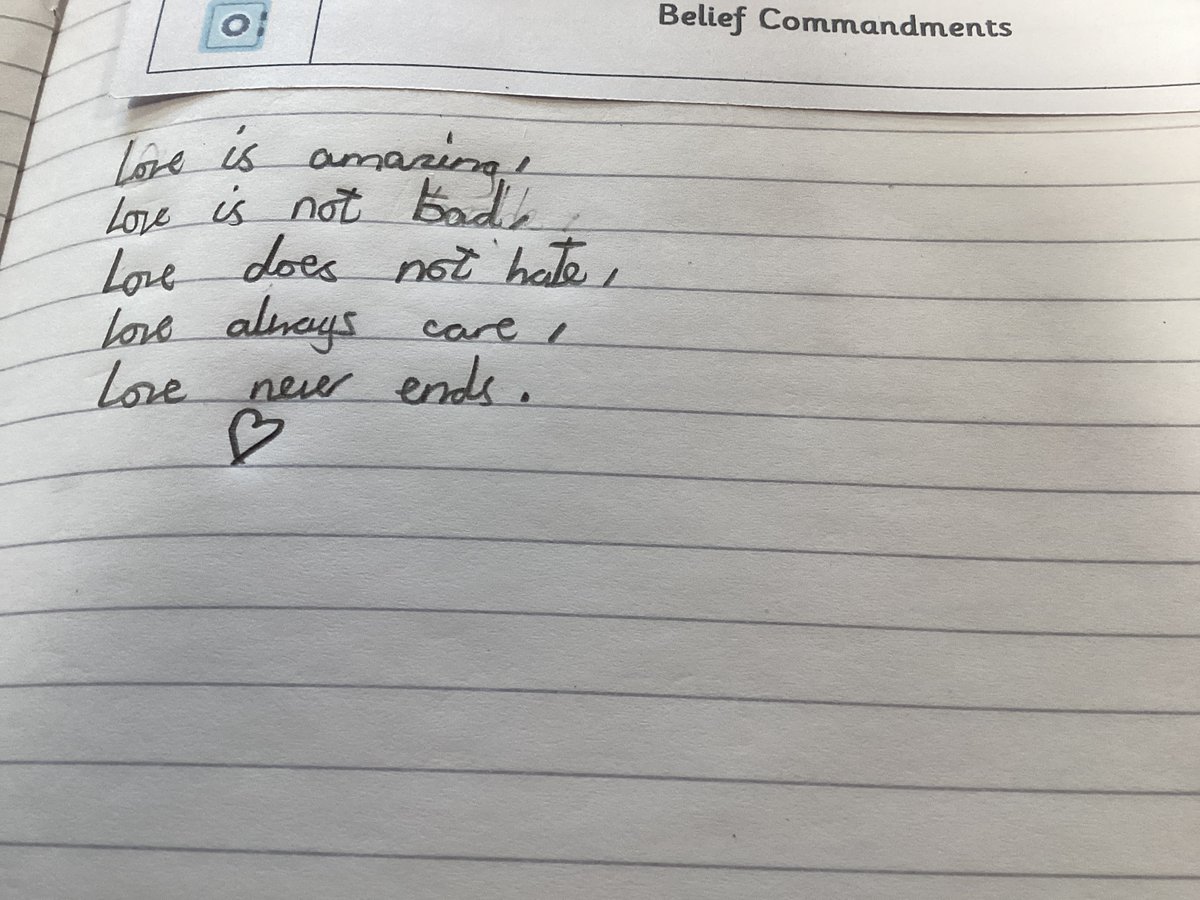 Belief Commandments
Love is amazing,
Love is not bad,
Love does not hate,
Love always care,
Love never ends.